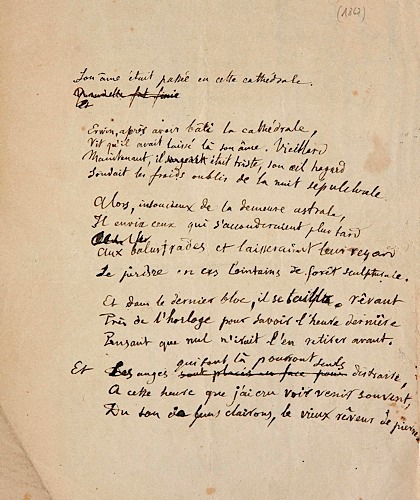 (1867)
Son âme était passée en cette cathédrale.
Quand elle fut finie
Et
Erwin, après avoir bâti la cathédrale,
Vit qu'il avait laissé là son âme. Vieillard
Maintenant, il était triste, son œil hagard
Sondait les froids oublis de la nuit sépulcrale.
Alors, insoucieux de la demeure astrale,
Il envia ceux qui s'accouderaient plus tard
Aux balustrades et laisseraient leur regard
Se perdre en ces lointains de forêt sculpturale.
Et dans le dernier bloc il se tailla, rêvant
Près de l'horloge pour savoir l'heure dernière
Pensant que nul n'irait l'en retirer avant.
qui sont là pourront seuls
Et Les anges sont placés en face pour distraire,
A cette heure que j'ai cru voir venir souvent,
Du son de leurs clairons, le vieux rêveur de pierre